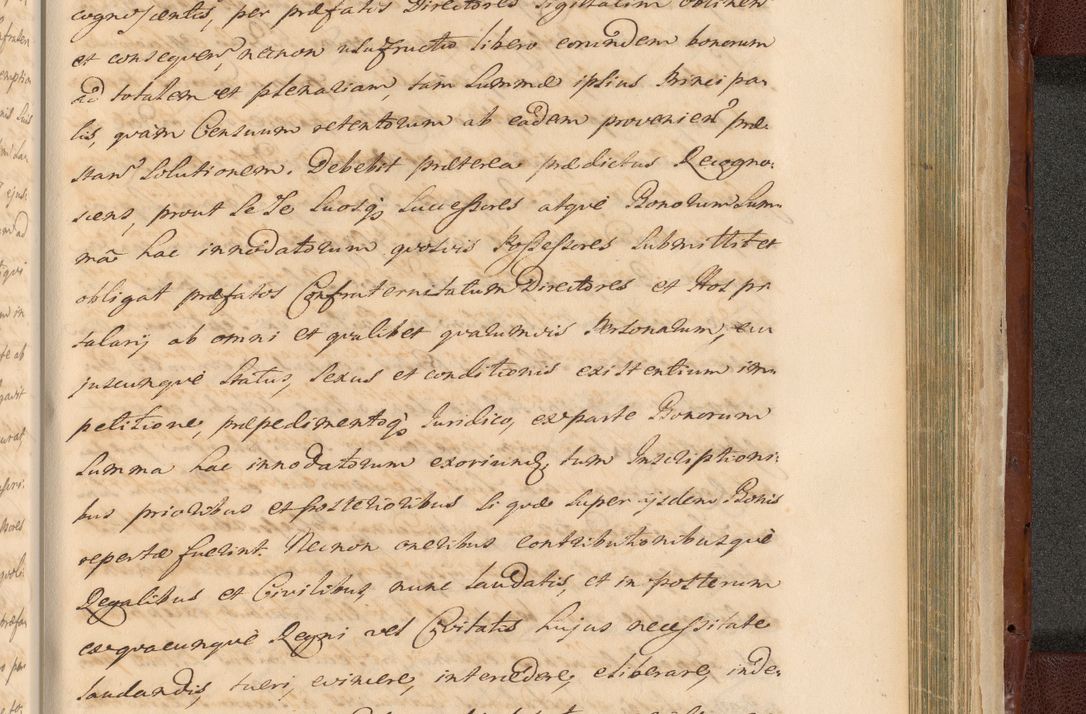 cognoscentis, per præfatos Directores sigillatim obtinen
et conseqven, necnon usufructio libero eorundem bonorum
ad totalem et plenariam, tam Summæ ipsius Principa-
lis, qvam Censuum retentorum ab eadem provenien præ-
stan Solutionem. Debebit præterea prædictus Recogno-
scens, prout se se suosq successores atqve Bonorum Sum-
mâ hac innodatorum qvosvis Possessores submittit et
obligat præfatos Confraternitatum Directores et Hospi-
talarij ab omni et qvalibet qvarumvis Personarum, cu-
juscunqve Status, Sexus et conditionis existentium im-
petitione, præpedimentoq Juridico, ex parte Bonorum
Summa hac innodatorum exoriund, tum Inscriptioni-
bus prioribus et posterioribus si qvæ super ijsdem Bonis
repertæ fuerint. Necnon oneribus contributionibusqve
Regalibus et Civilibus, nunc laudatis, et in posterum
ex qvacunqve Regni vel Civitatis hujus necessitate
laudandis, tueri, evincere, intercedere, eliberare, inde-